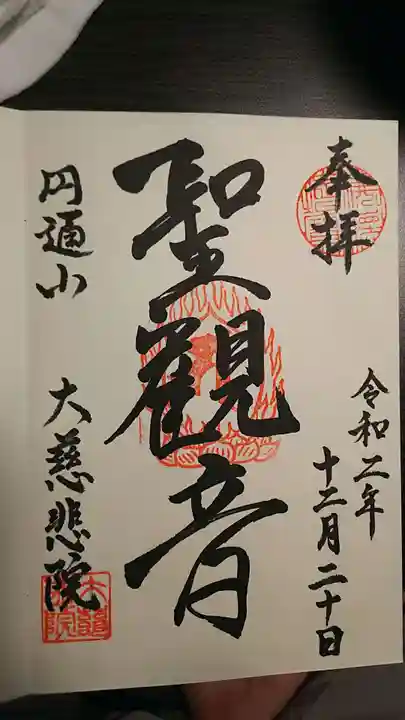 奉拝
令和二年
十二月二十日
聖觀音
円通山
大慈悲院